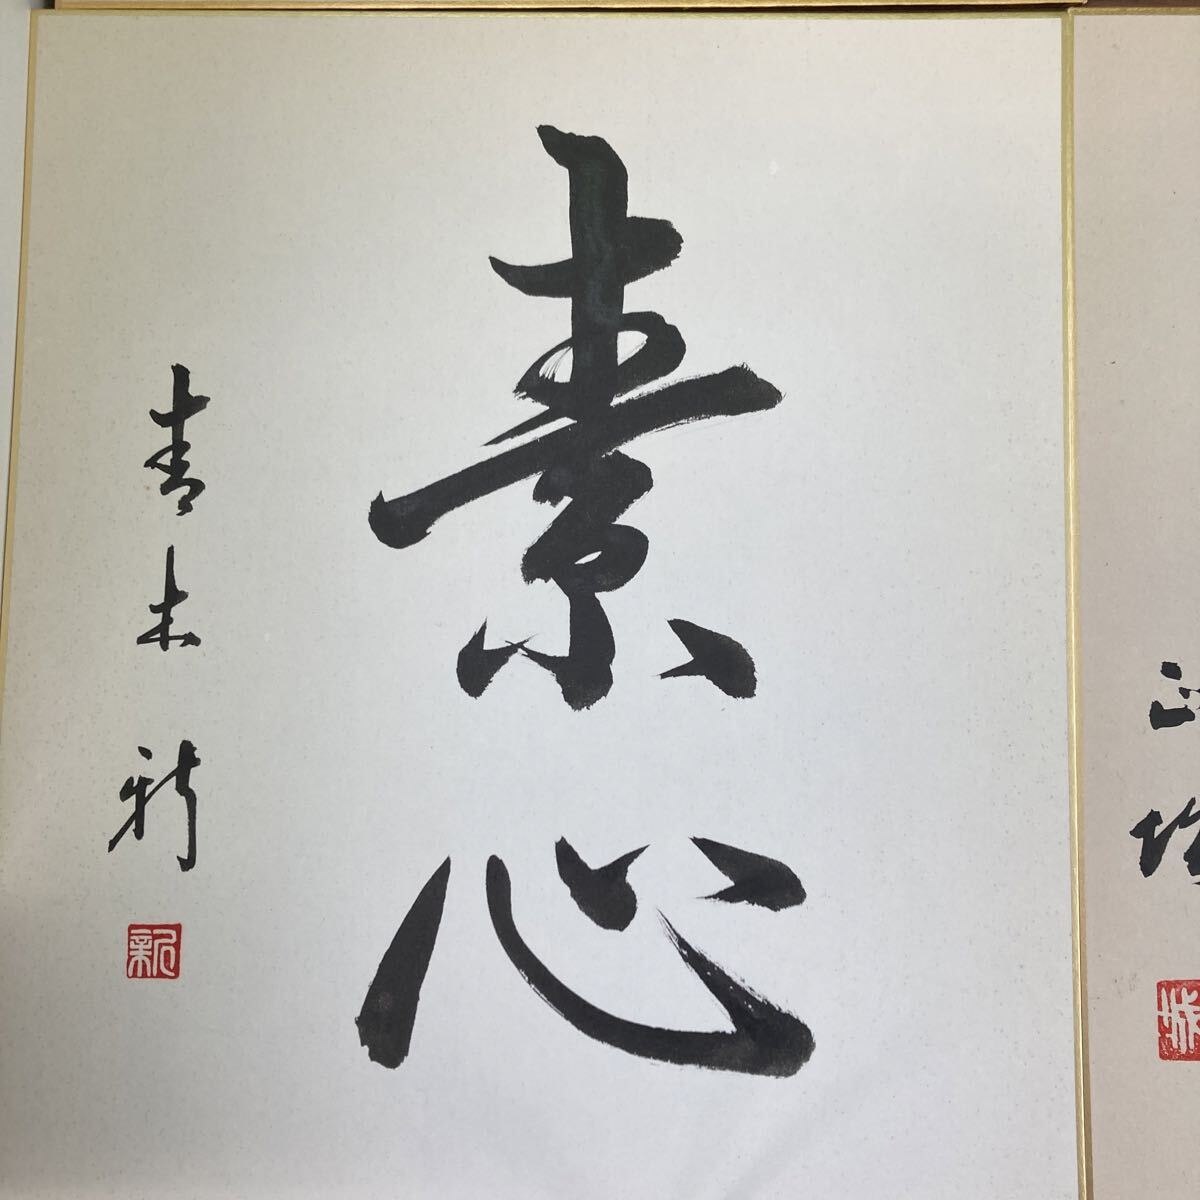 素心
青木新
新